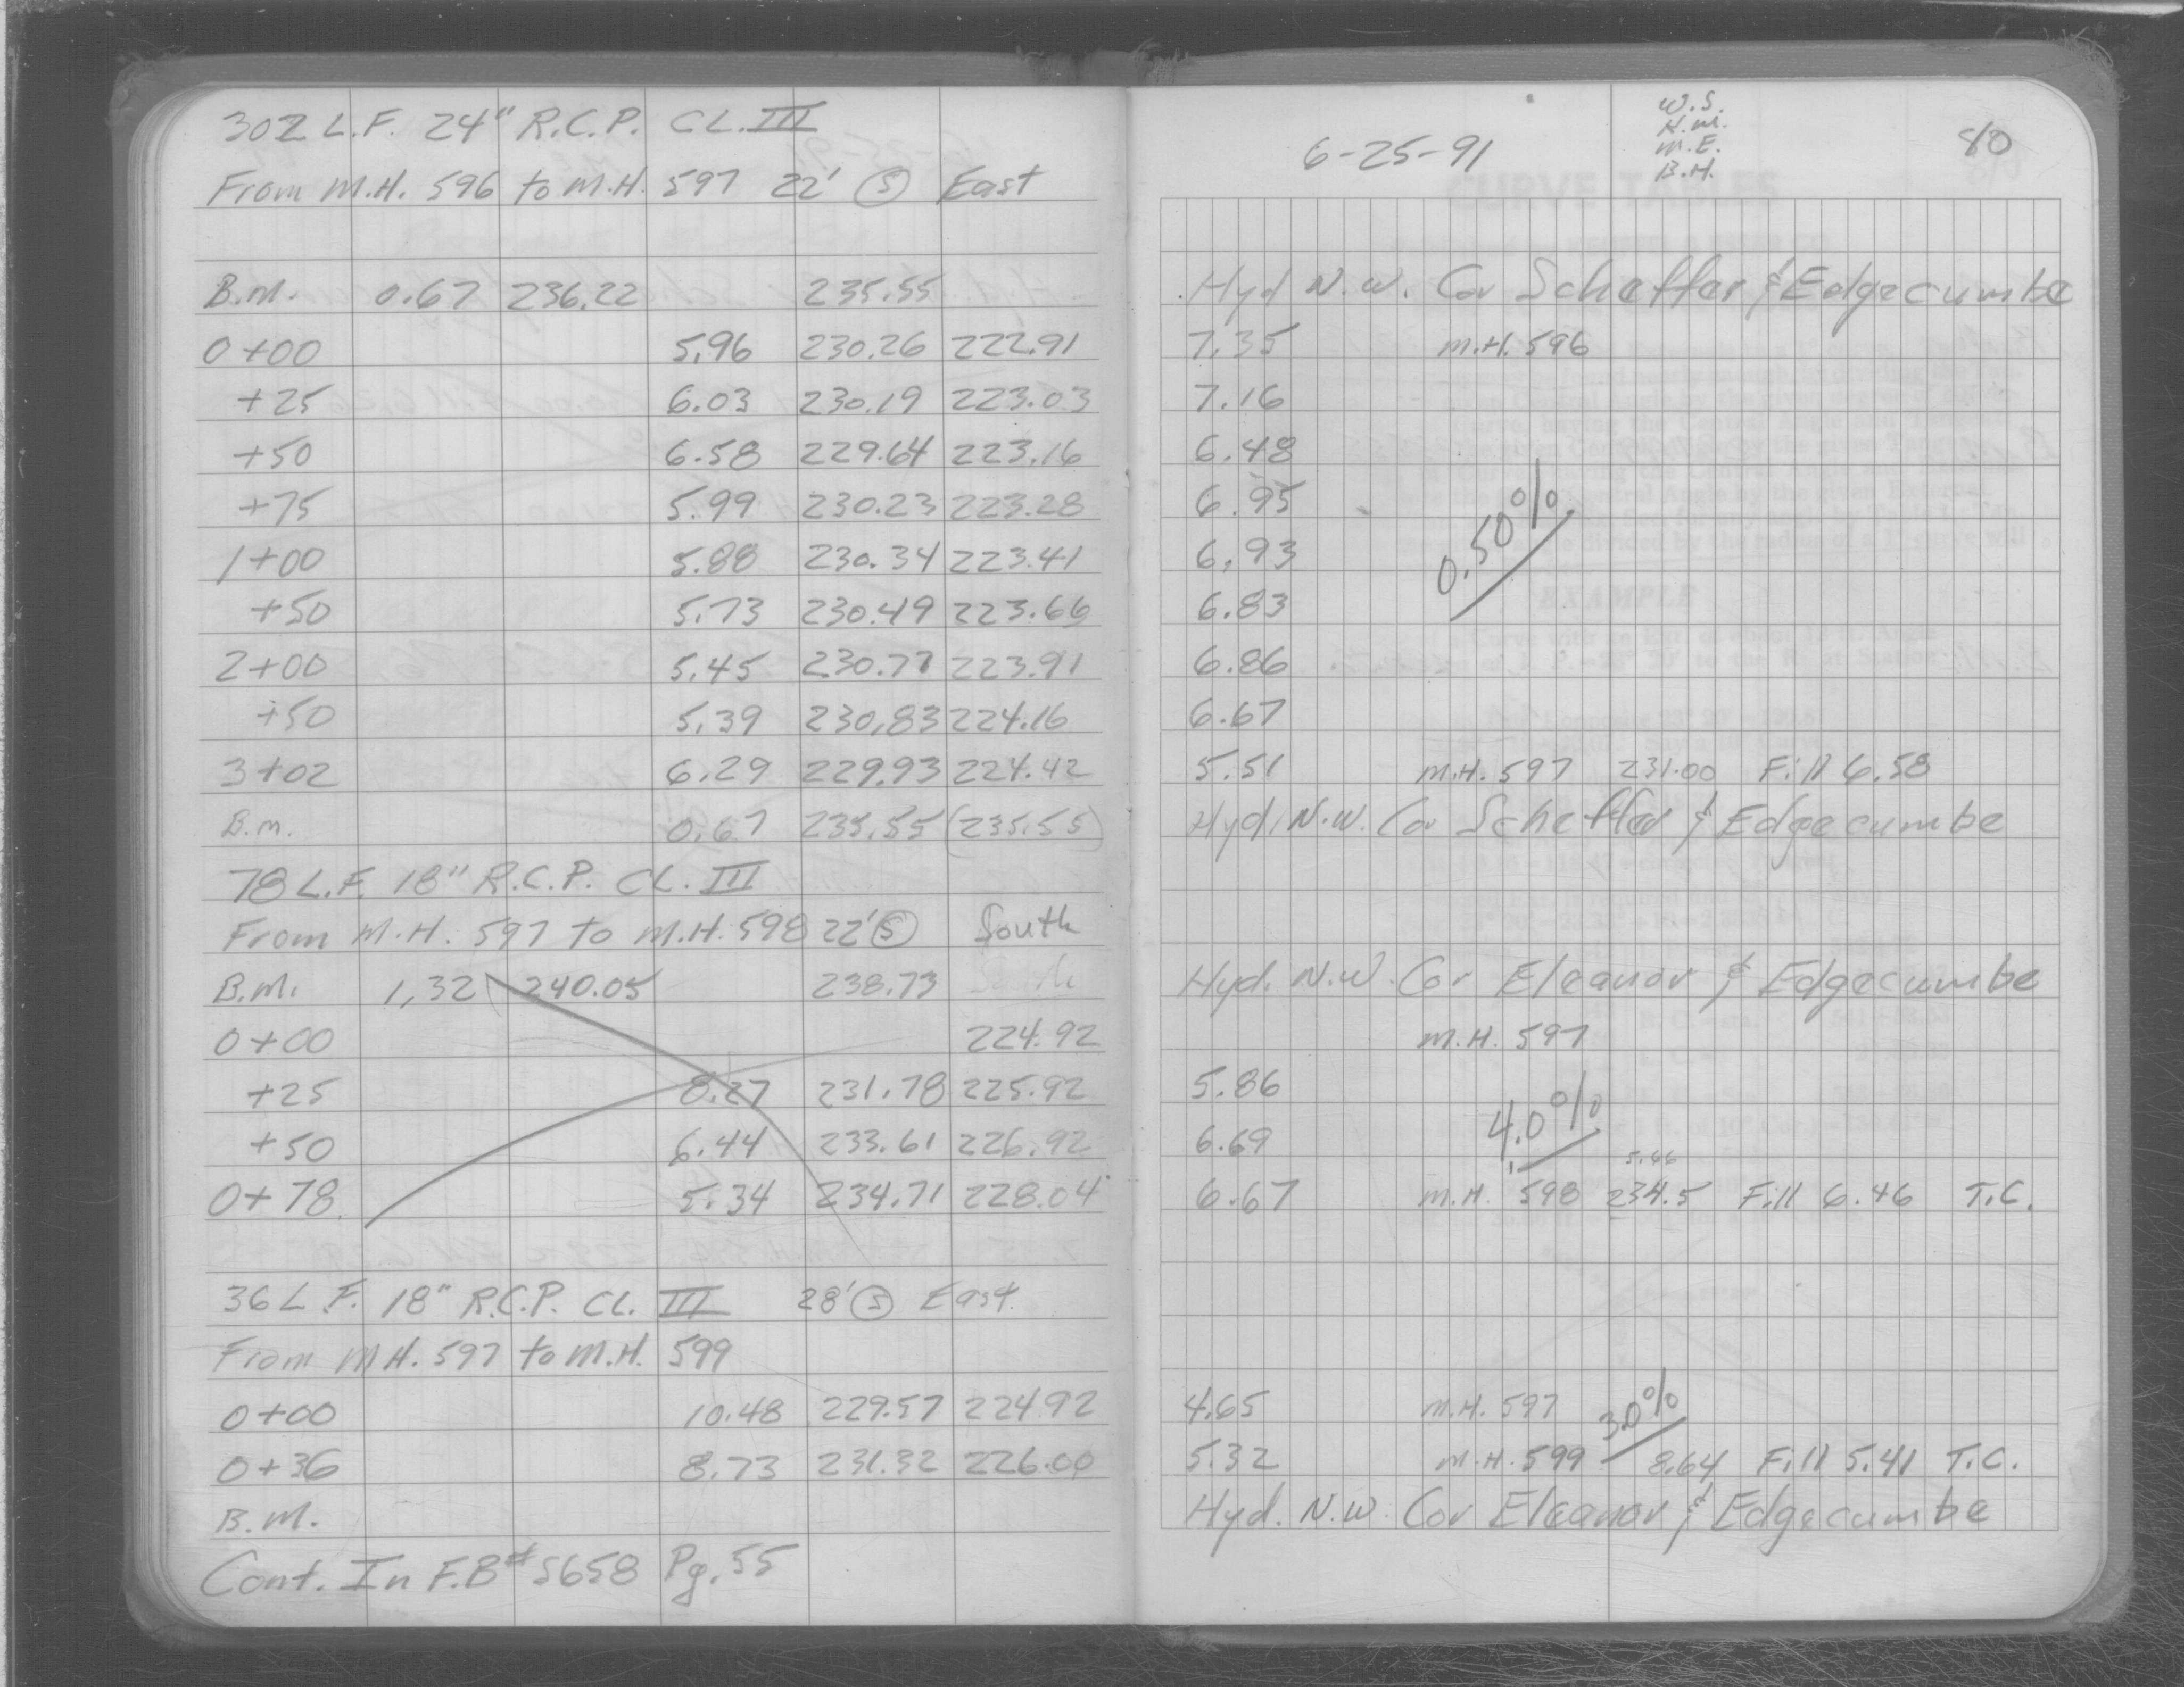 302 L.F. 24" R.C.P. CL. III
From M.H. 596 to M.H. 597 22' S East
B.M. 0.67 236.22 235.55
0+00 5.96 230.26 222.91
+25 6.03 230.19 223.03
+50 6.58 229.64 223.16
+75 5.99 230.23 223.28
1+00 5.88 230.34 223.41
+50 5.73 230.49 223.66
2+00 5.45 230.77 223.91
+50 5.39 230.83 224.16
3+02 6.29 229.93 224.42
B.M. 0.67 235.55 (235.55)
78 L.F. 18" R.C.P. CL. III
From M.H. 597 to M.H. 598 22' S South
B.M. 1.32 240.05 238.73
0+00 224.92
+25 8.27 231.78 225.92
+50 6.44 233.61 226.92
0+78 5.34 234.71 228.04
36 L.F. 18" R.C.P. CL. III 28' S East
From M.H. 597 to M.H. 599
0+00 10.48 229.57 224.92
0+36 8.73 231.32 226.00
B.M.
Cont. In F.B.# 5658 Pg. 55
6-25-91
W.S.
H.M.
M.E.
B.H.
80
Hyd N.W. Cor Scheffer & Edgecumbe
7.35 M.H. 596
7.16
6.48
6.95
0.50%
6.93
6.83
6.86
6.67
5.51 M.H. 597 231.00 Fill 6.58
Hyd. N.W. Cor Scheffer & Edgecumbe
Hyd. N.W. Cor Eleanor & Edgecumbe
M.H. 597
5.86
4.0%
6.69
6.67 M.H. 598 234.5 Fill 6.46 T.C.
4.65 M.H. 597
3.0%
5.32 M.H. 599 8.64 Fill 5.41 T.C.
Hyd. N.W. Cor Eleanor & Edgecumbe